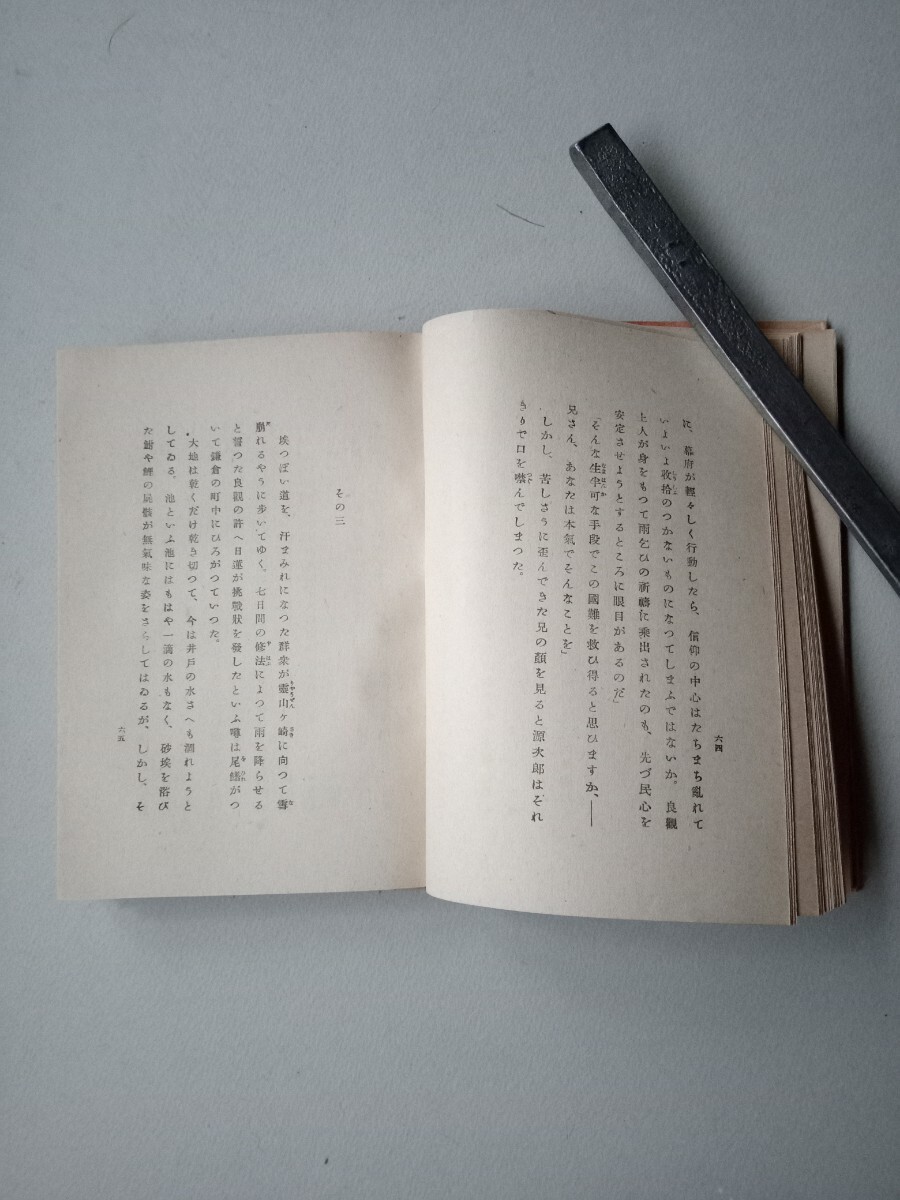 六四
に、幕府が輕々しく行動したら、信仰の中心はたちまち亂れて
いよいよ收拾のつかないものになつてしまふではないか。良觀
上人が身をもつて雨乞ひの祈禱に乘出されたのも、先づ民心を
安定させようとするところに眼目があるのだ」
「そんな生半可な手段でこの國難を救ひ得ると思ひますか、――
兄さん、あなたは本氣でそんなことを」
しかし、苦しさうに歪んできた兄の顏を見ると源次郎はそれ
きりで口を噤んでしまつた。
その三
埃つぽい道を、汗まみれになつた群衆が靈山ヶ崎に向つて雪
崩れるやうに歩いてゆく。七日間の修法によつて雨を降らせる
と誓つた良觀の許へ日蓮が挑戰狀を發したといふ噂は尾鰭がつ
いて鎌倉の町中にひろがつていつた。
大地は乾くだけ乾き切つて、今は井戸の水さへも涸れようと
してゐる。池といふ池にはもはや一滴の水もなく、砂埃を浴び
た鮒や鯉の屍骸が無氣味な姿をさらしてはゐるが、しかし、そ
六五